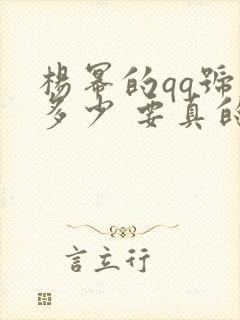 楊幂的qq號
多少 要真的
言立行